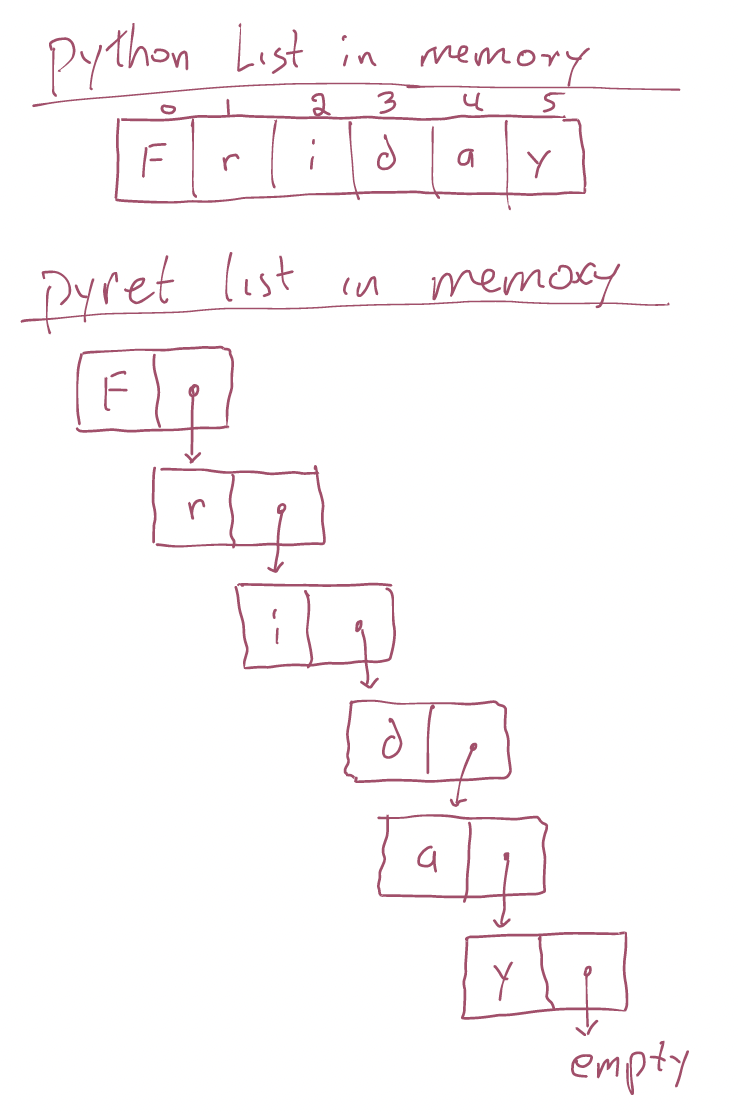 Python List in memory
0 1 2 3 4 5
F r i d a y
pyret list in memory
F
r
i
d
a
y
empty